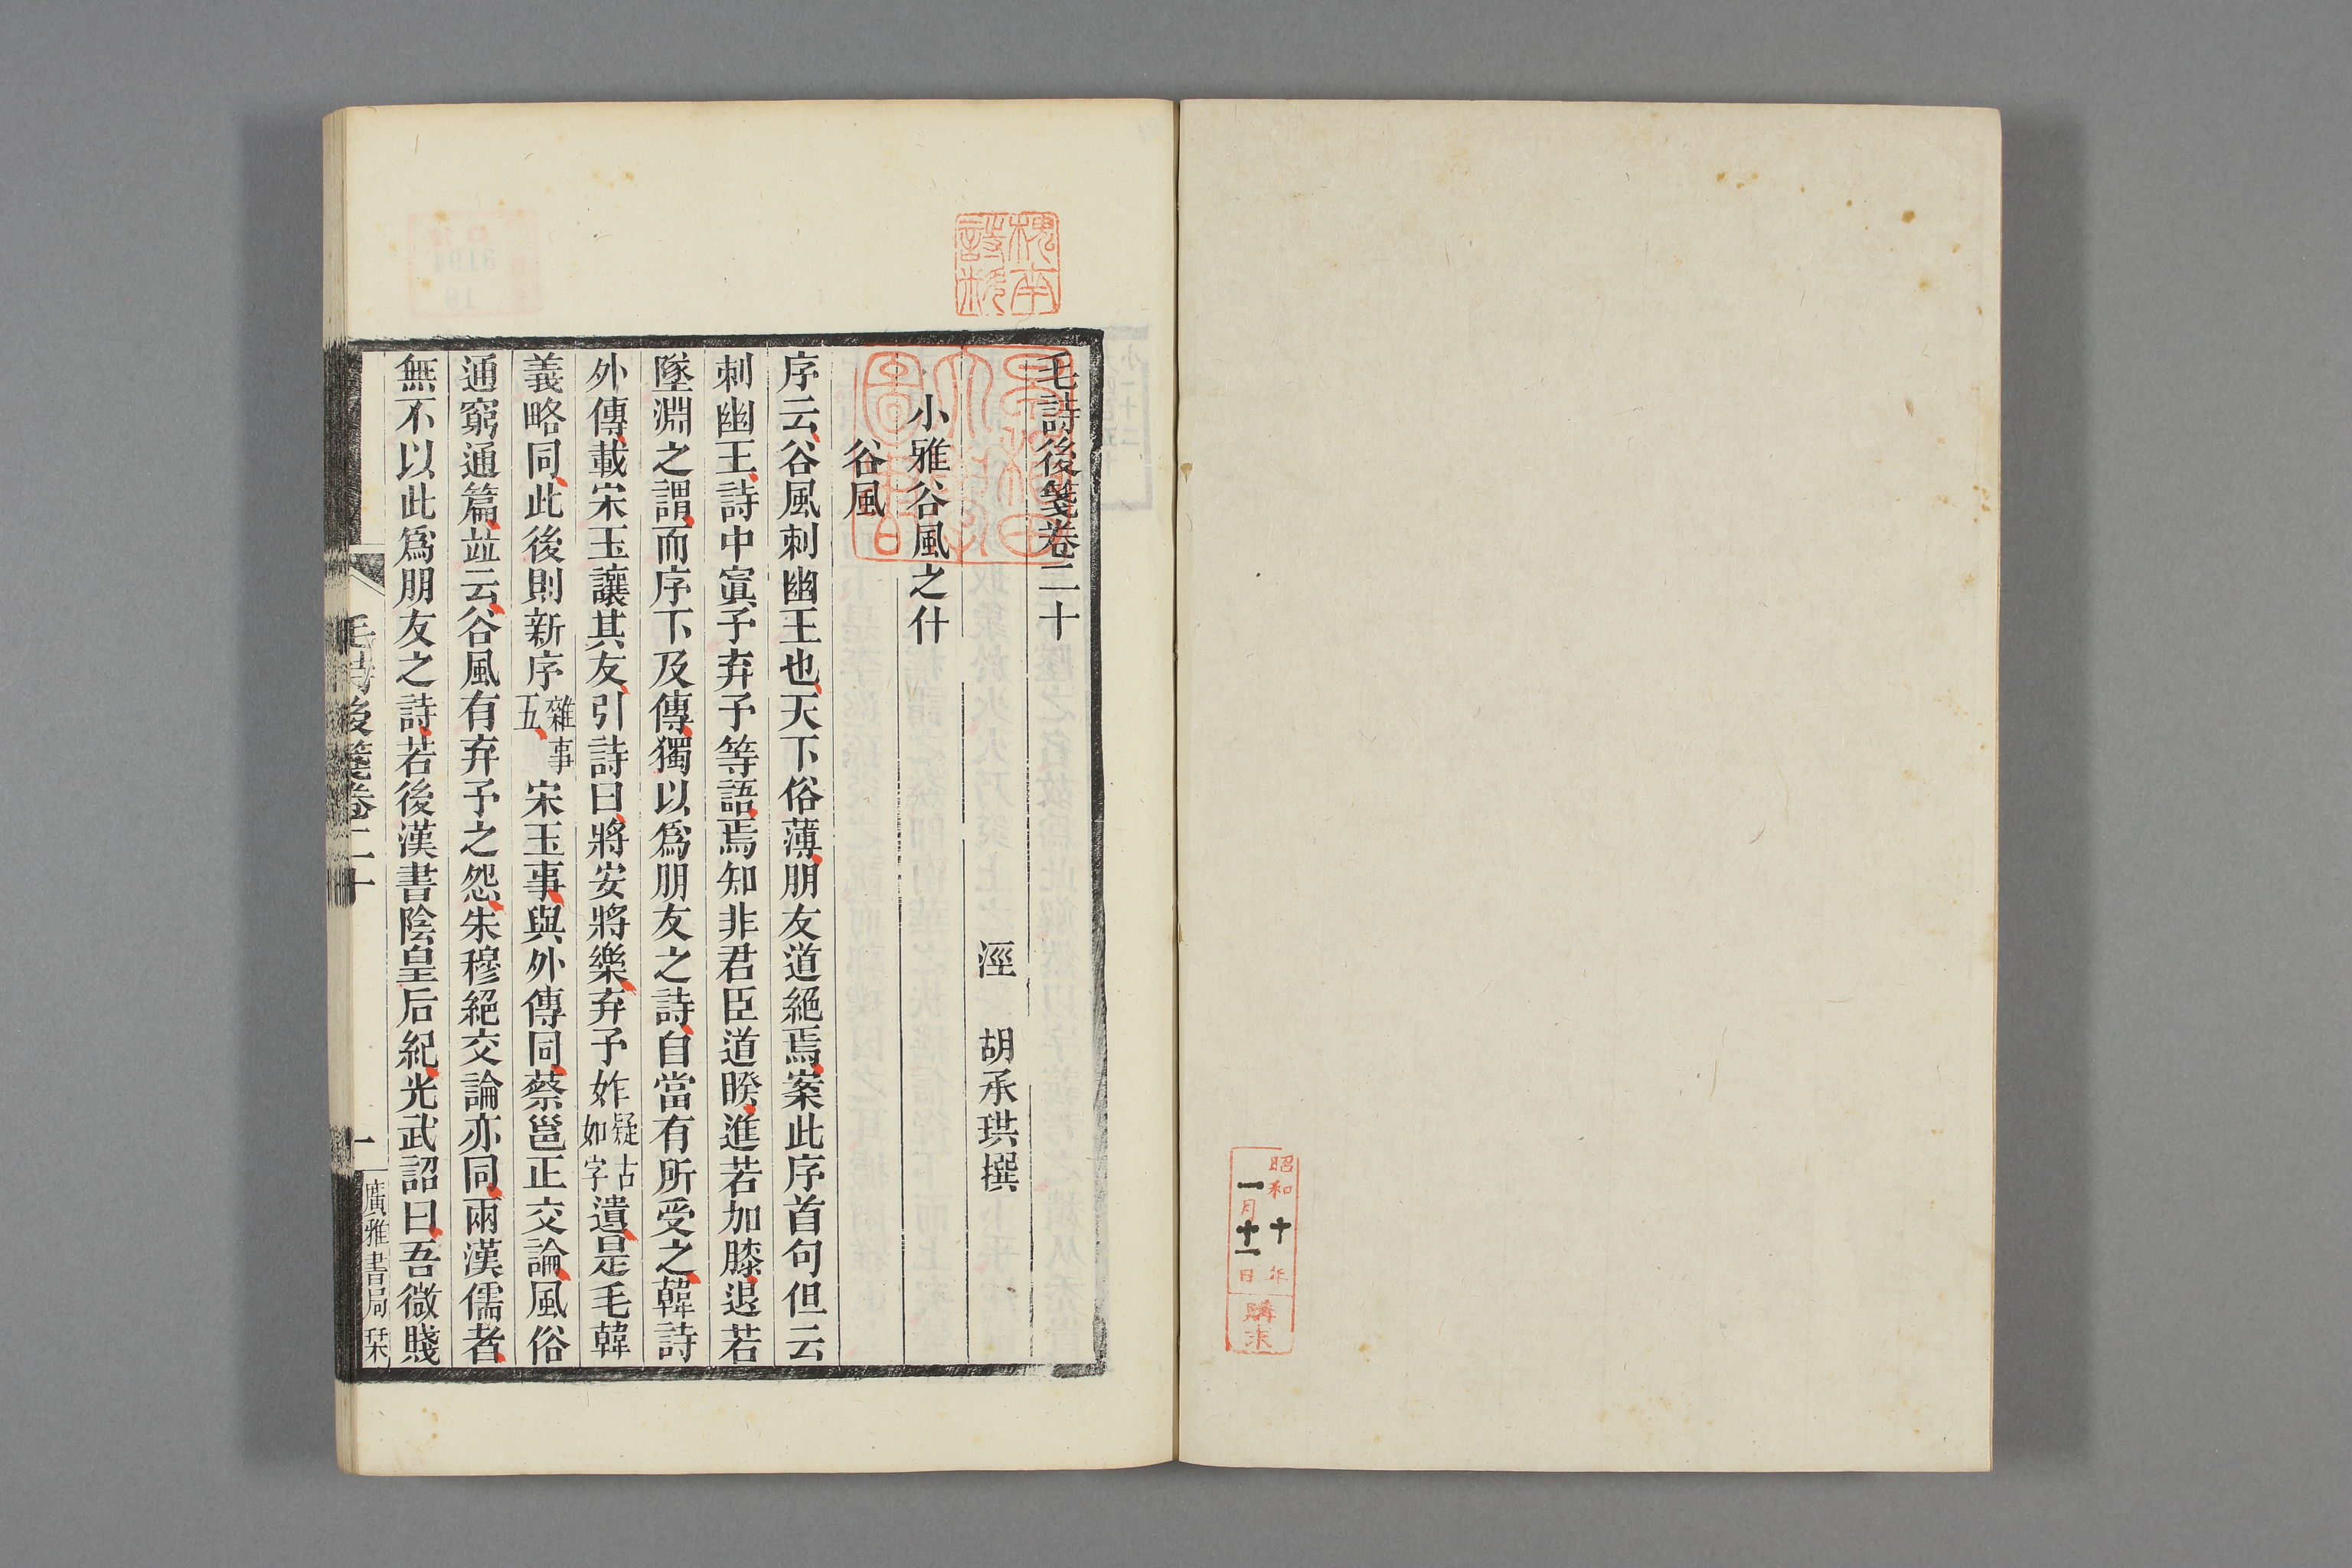 毛詩後箋卷二十
涇　胡承珙撰
小雅谷風之什
谷風
序云谷風刺幽王也天下俗薄朋友道絕焉案此序首句但云
刺幽王詩中寘予弃予等語焉知非君臣道睽進若加膝退若
墜淵之謂而序下及傳獨以爲朋友之詩自當有所受之韓詩
外傳載宋玉讓其友引詩曰將安將樂弃予妰疑古如字遺是毛韓
義略同此後則新序雜事五宋玉事與外傳同蔡邕正交論風俗
通窮通篇竝云谷風有弃予之怨朱穆絕交論亦同兩漢儒者
無不以此爲朋友之詩若後漢書陰皇后紀光武詔曰吾微賤
毛詩後箋卷二十
一
廣雅書局栞
槐南
昭和十年
一月十一日
購求